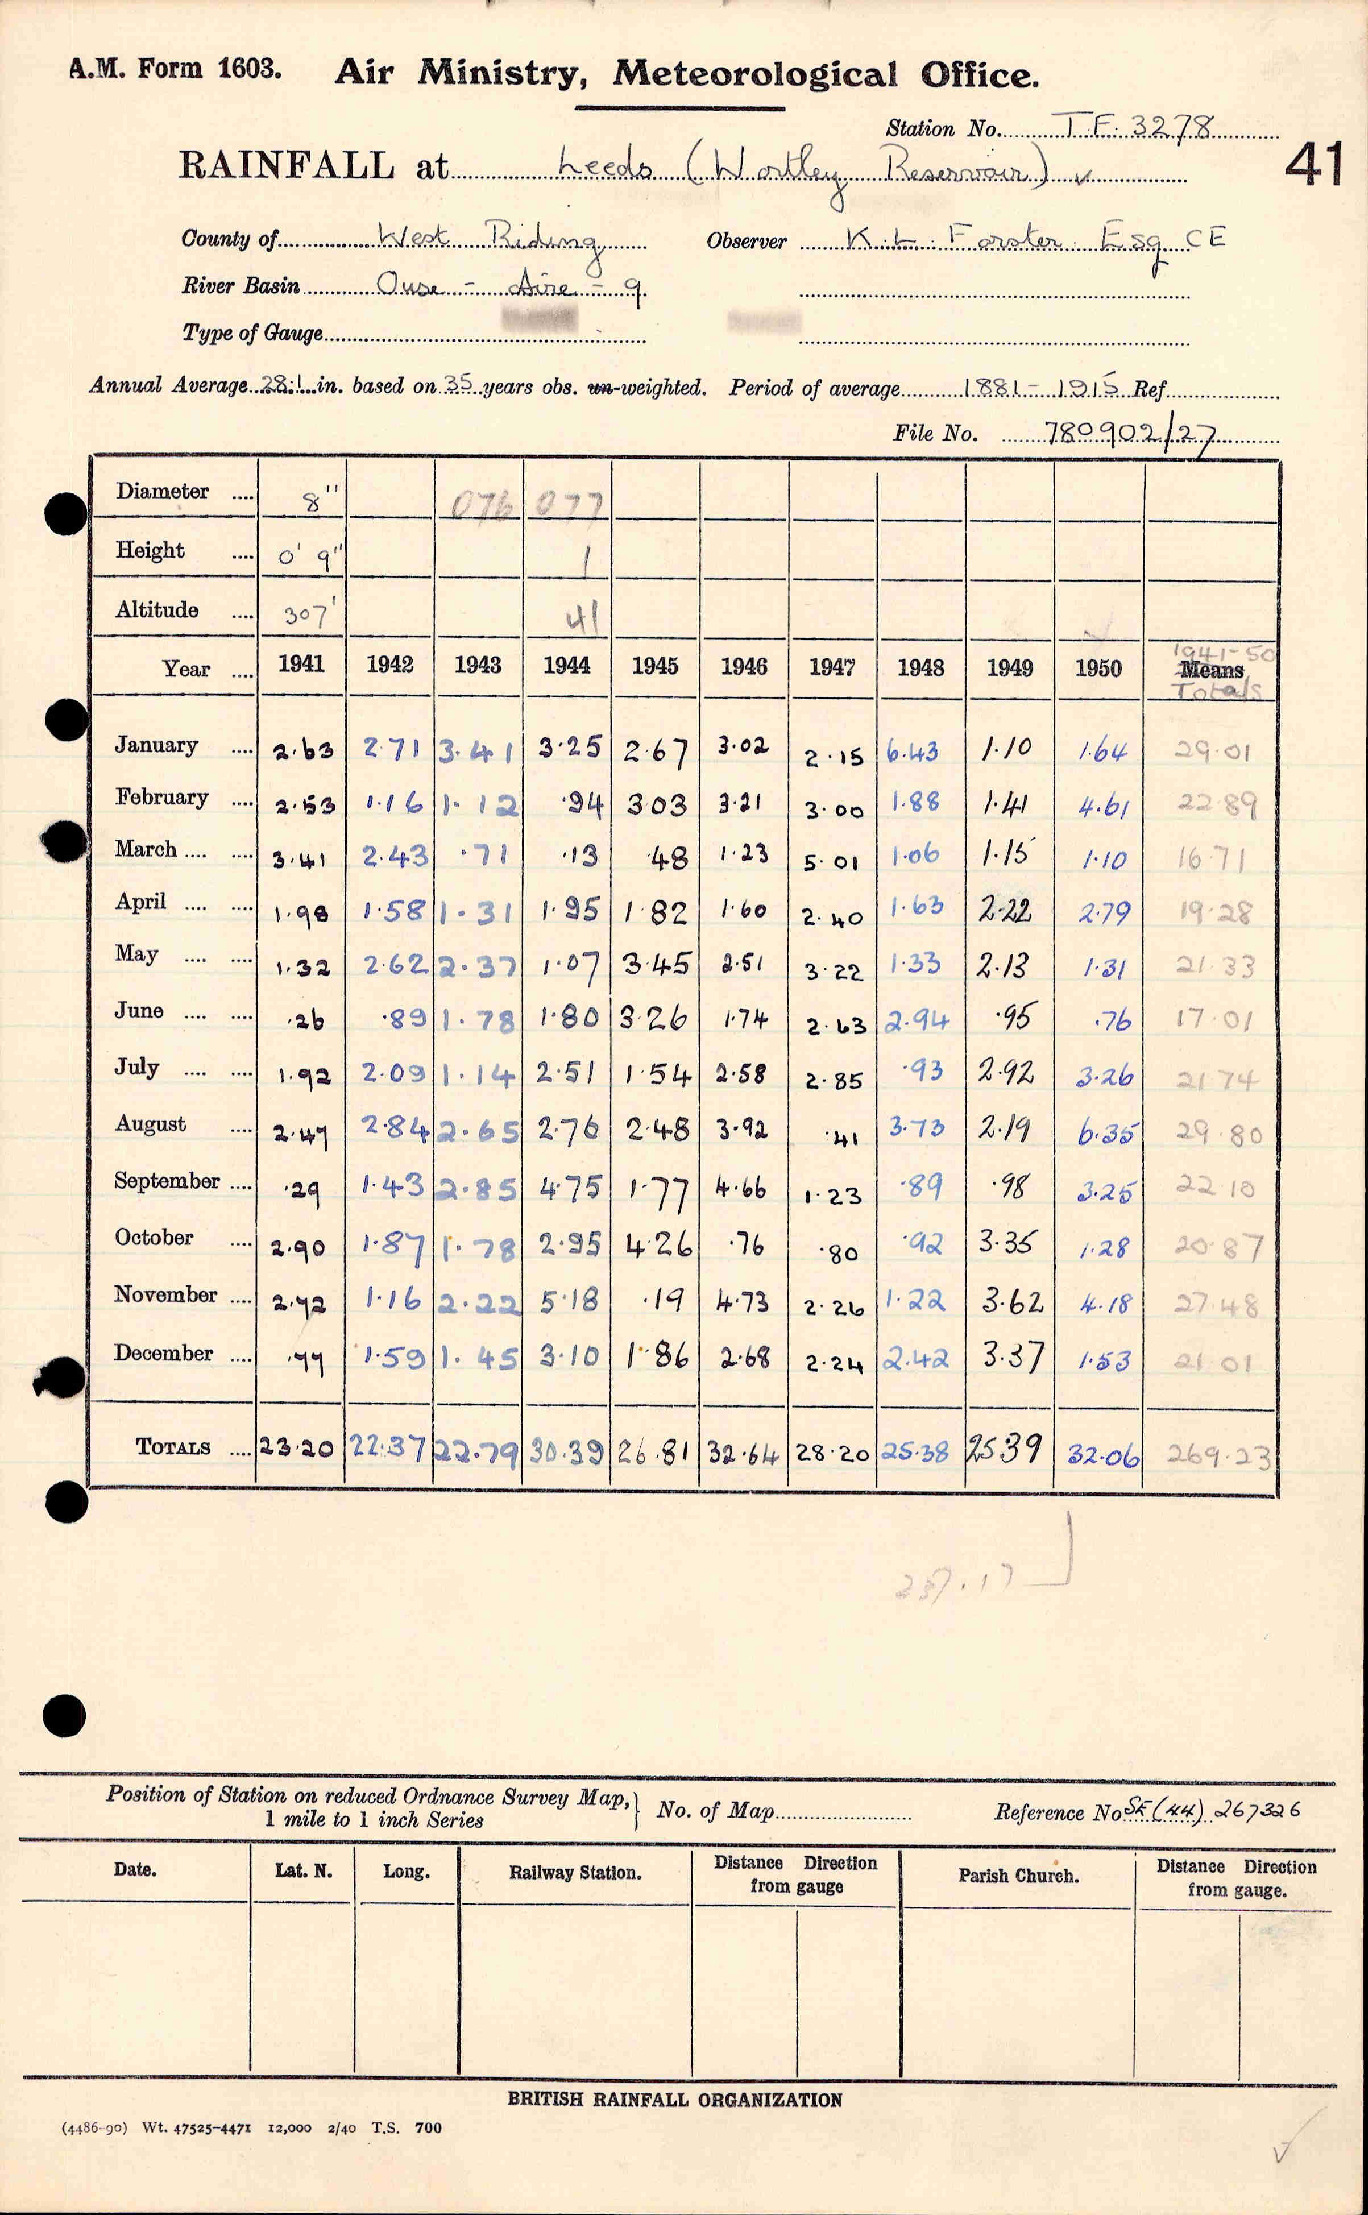 A.M. Form 1603. Air Ministry, Meteorological Office.
Station No. T.F. 3278
RAINFALL at Leeds (Wortley Reservoir) ✓ 41
County of West Riding Observer K. L. Forster Esq CE
River Basin Ouse - Aire - 9
Type of Gauge
Annual Average 28.1 in. based on 35 years obs. un-weighted. Period of average 1881 - 1915 Ref
File No. 780902/27
Diameter .... 8" 076 077
Height .... 0' 9" 1
Altitude .... 307' 41
Year .... 1941 1942 1943 1944 1945 1946 1947 1948 1949 1950 1941-50 Means Totals
January .... 2.63 2.71 3.41 3.25 2.67 3.02 2.15 6.43 1.10 1.64 29.01
February .... 2.53 1.16 1.12 .94 3.03 3.21 3.00 1.88 1.41 4.61 22.89
March .... .... 3.41 2.43 .71 .13 .48 1.23 5.01 1.06 1.15 1.10 16.71
April .... .... 1.98 1.58 1.31 1.95 1.82 1.60 2.40 1.63 2.22 2.79 19.28
May .... .... 1.32 2.62 2.37 1.07 3.45 2.51 3.22 1.33 2.13 1.31 21.33
June .... .... .26 .89 1.78 1.80 3.26 1.74 2.63 2.94 .95 .76 17.01
July .... .... 1.92 2.09 1.14 2.51 1.54 2.58 2.85 .93 2.92 3.26 21.74
August .... 2.47 2.84 2.65 2.76 2.48 3.92 .41 3.73 2.19 6.35 29.80
September .... .29 1.43 2.85 4.75 1.77 4.66 1.23 .89 .98 3.25 22.10
October .... 2.90 1.87 1.78 2.95 4.26 .76 .80 .92 3.35 1.28 20.87
November .... 2.72 1.16 2.22 5.18 .19 4.73 2.26 1.22 3.62 4.18 27.48
December .... .77 1.59 1.45 3.10 1.86 2.68 2.24 2.42 3.37 1.53 21.01
TOTALS .... 23.20 22.37 22.79 30.39 26.81 32.64 28.20 25.38 25.39 32.06 269.23
237.17
Position of Station on reduced Ordnance Survey Map,
1 mile to 1 inch Series } No. of Map Reference No SE (44) 267326
Date. Lat. N. Long. Railway Station. Distance Direction from gauge Parish Church. Distance Direction from gauge.
BRITISH RAINFALL ORGANIZATION
(4486-90) Wt. 47525-4471 12,000 2/40 T.S. 700
✓